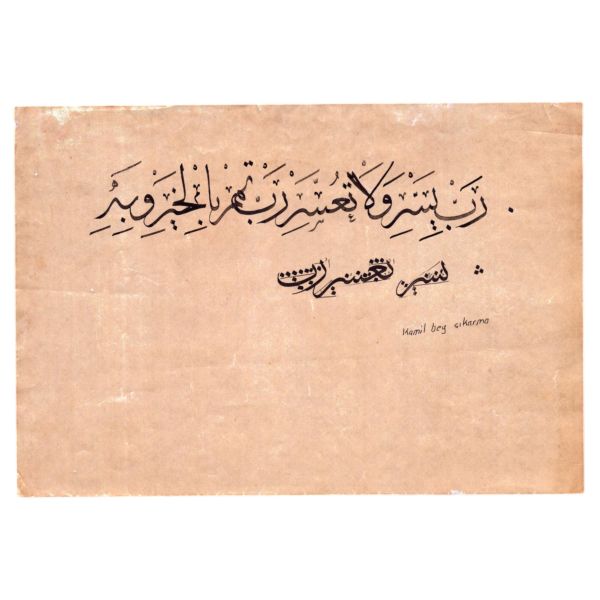 رَبِّ يَسِّرْ وَلَا تُعَسِّرْ رَبِّ تَمِّمْ بِالْخَيْرِ وَبِهِ
Kamil bey çıkarma